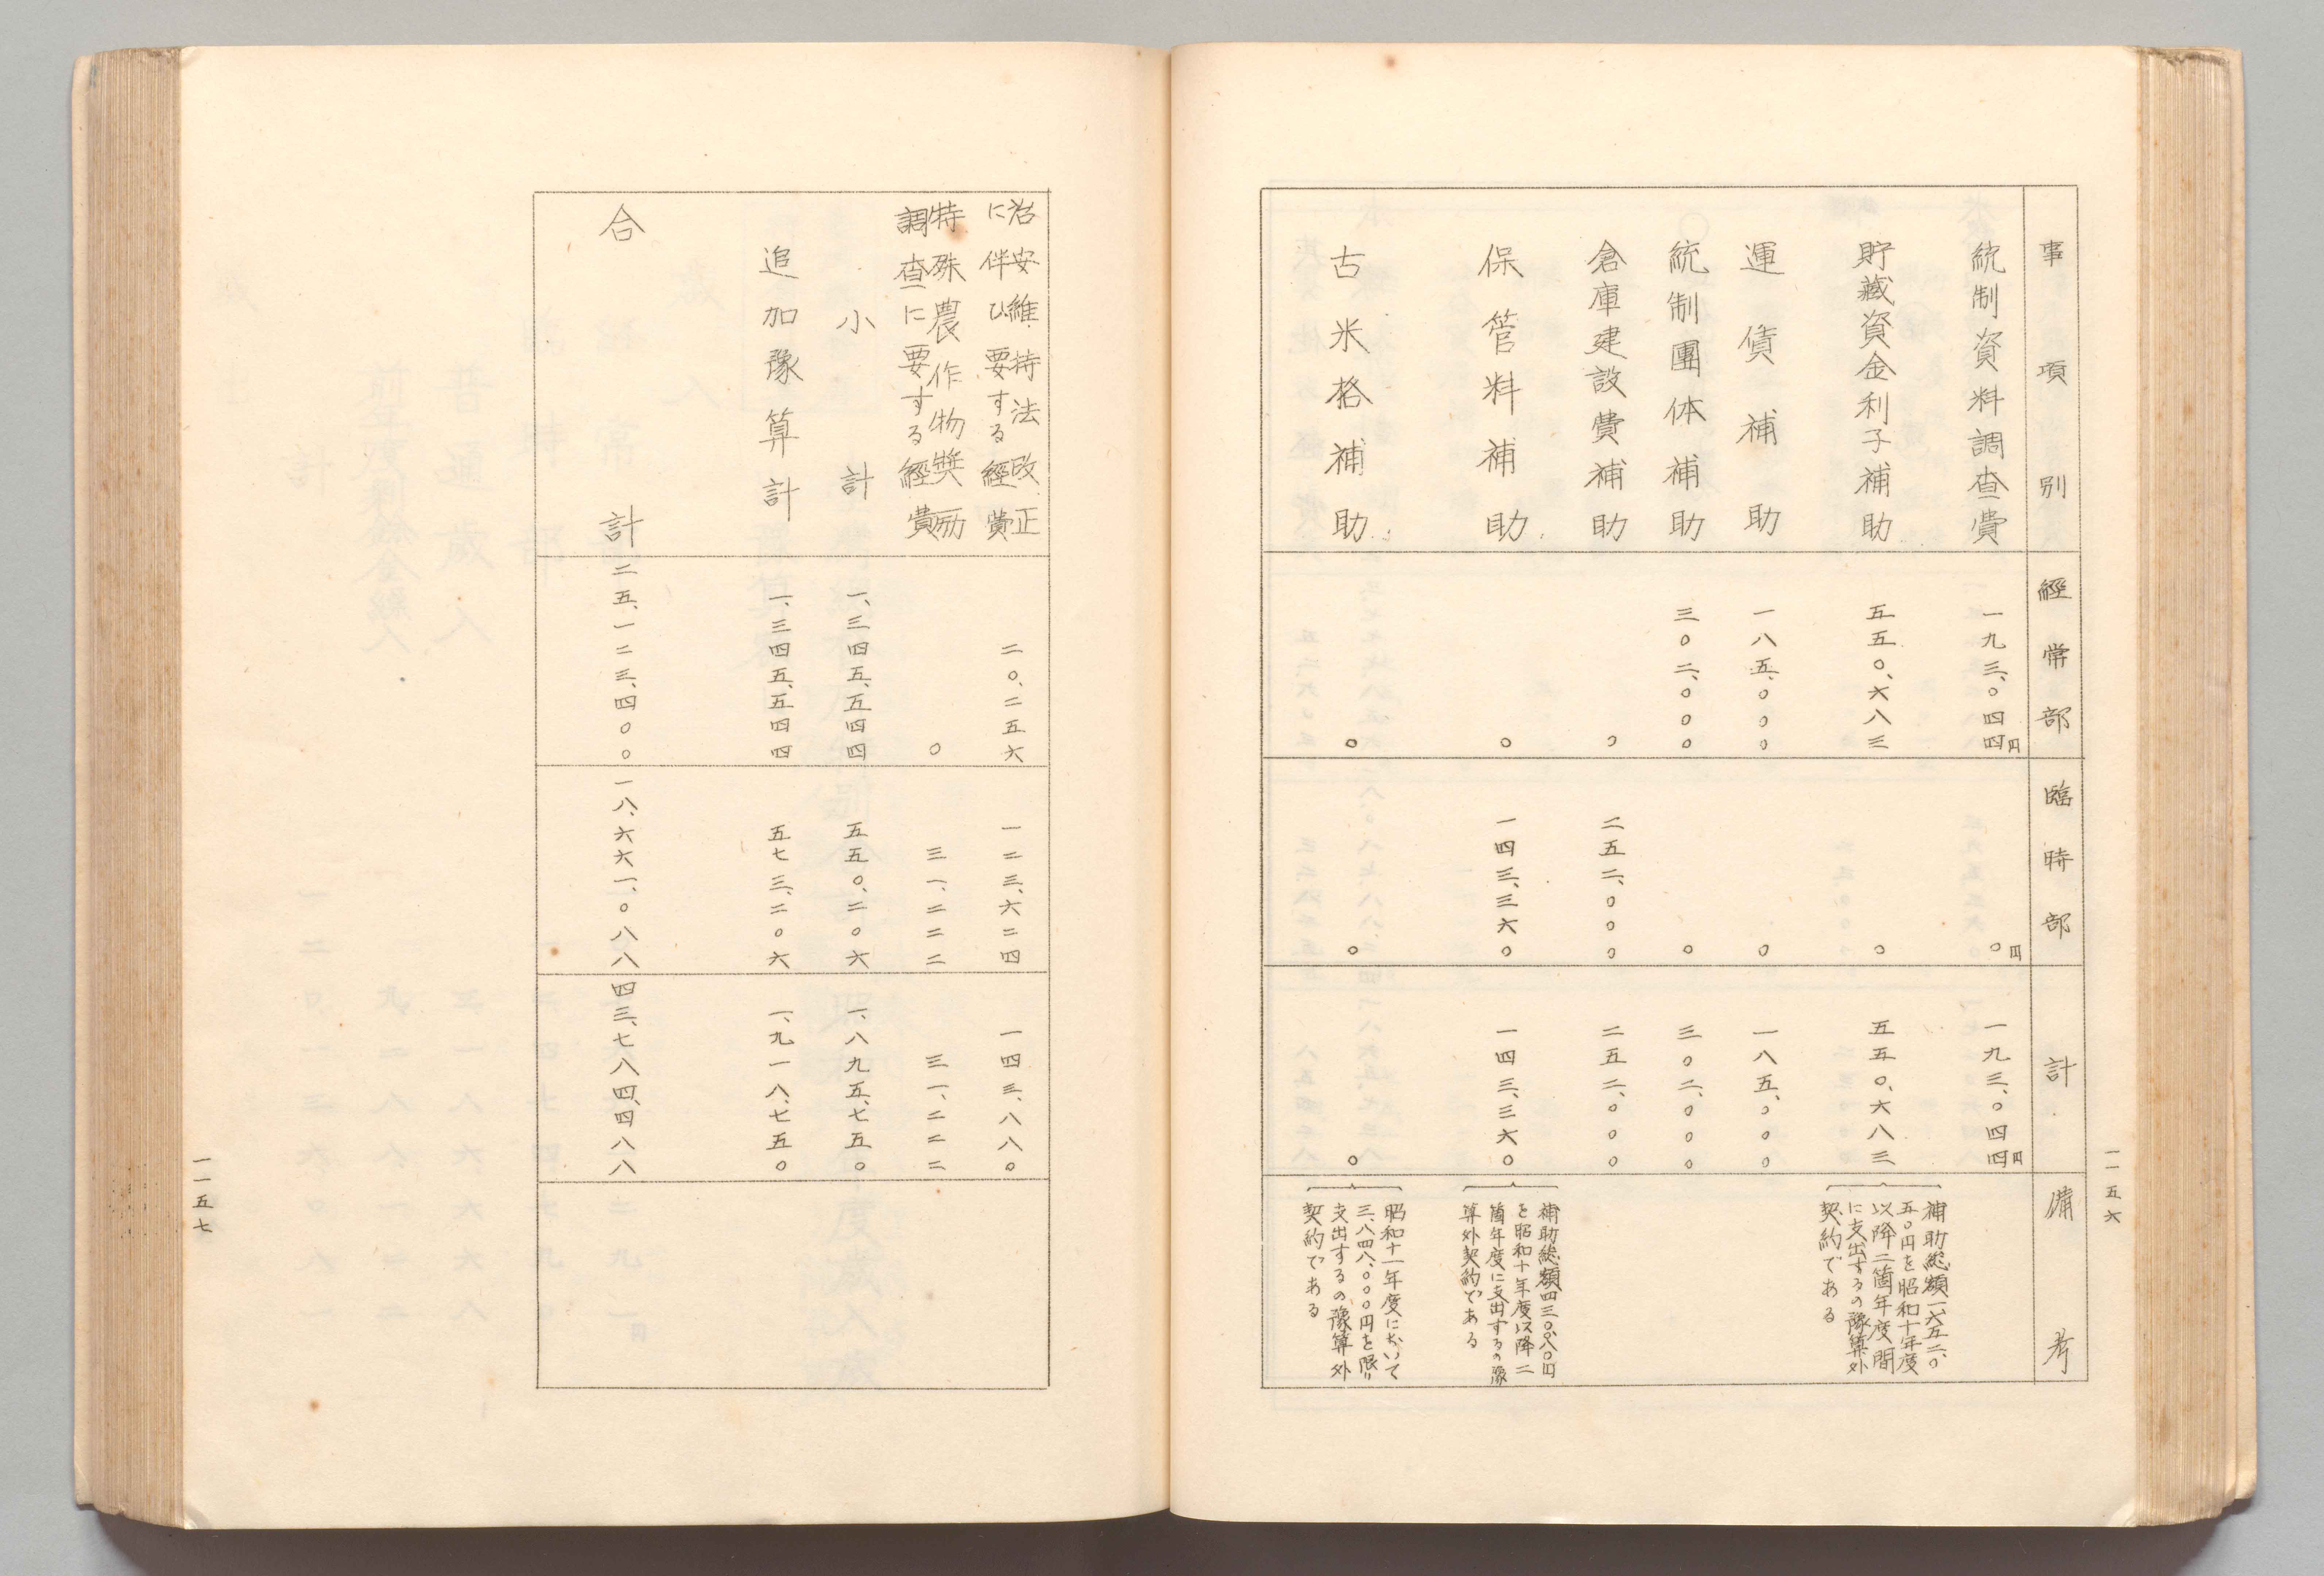 一一五六
事項別 經常部 臨時部 計 備考
統制資料調査費 一九三、〇四四円 〇円 一九三、〇四四円
貯藏資金利子補助 五五〇、六八三 〇 五五〇、六八三
補助総額一、六五二、〇
五〇円を昭和十年度
以降二箇年度間
に支出するの豫算外
契約である
運賃補助 一八五、〇〇〇 〇 一八五、〇〇〇
統制團体補助 三〇二、〇〇〇 〇 三〇二、〇〇〇
倉庫建設費補助 〇 二五二、〇〇〇 二五二、〇〇〇
保管料補助 〇 一四三、三六〇 一四三、三六〇
補助総額四三〇、〇八〇円
を昭和十年度以降二
箇年度に支出するの豫
算外契約である
古米格補助 〇 〇 〇
昭和十一年度において
三、八四八、〇〇〇円を限り
支出するの豫算外
契約である
治安維持法改正
に伴ひ要する經費 二〇、二五六 一二三、六二四 一四三、八八〇
特殊農作物獎励
調査に要する經費 〇 三一、二二二 三一、二二二
小計 一、三四五、五四四 五五〇、二〇六 一、八九五、七五〇
追加豫算計 一、三四五、五四四 五七三、二〇六 一、九一八、七五〇
合計 二五、一二三、四〇〇 一八、六六一、〇八八 四三、七八四、四八八
一一五七